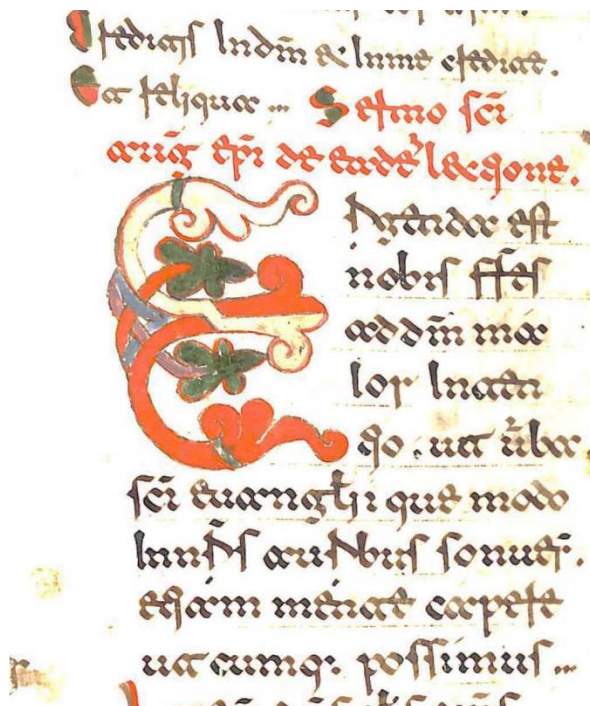 creditis In dm̄ & In me credite.
Et reliqua ... Sermo sc̄i
auḡ ep̄i de eade lectione.
Erigenda est
nobis fr̄s
ad dm̄ ma
ior Inten
tio . ut ūba
sc̄i euanglīi que modo
In nr̄s auribus sonuer̄.
etiam mente carpere
ut cumq: possimus...